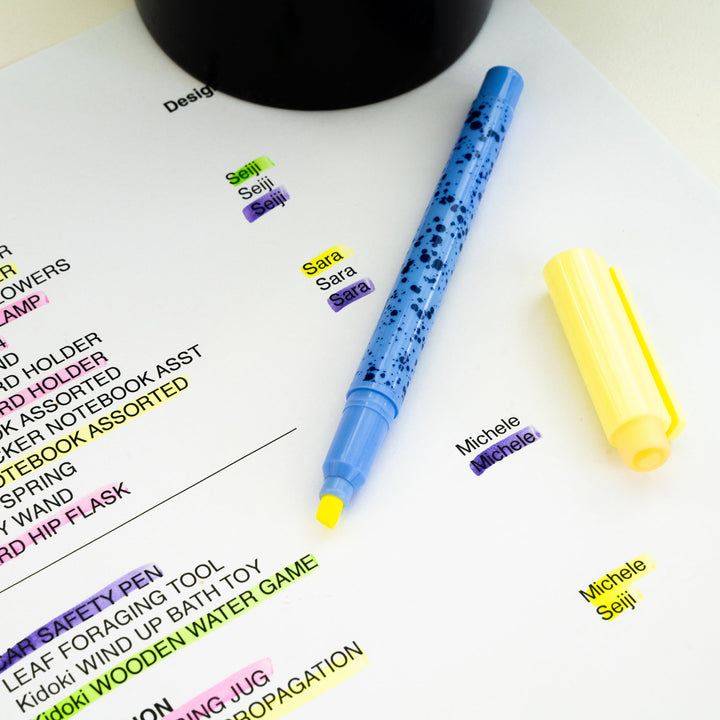 Seiji
Seiji
Seiji
Sara
Sara
Sara
LOWERS
LAMP
RD HOLDER
RD HOLDER
OK ASSORTED
CKER NOTEBOOK ASST
OTEBOOK ASSORTED
SPRING
Y WAND
RD HIP FLASK
Michele
Michele
CAR SAFETY PEN
LEAF FORAGING TOOL
Kidoki WIND UP BATH TOY
Kidoki WOODEN WATER GAME
Michele
Seiji
ION
ING JUG
PROPAGATION